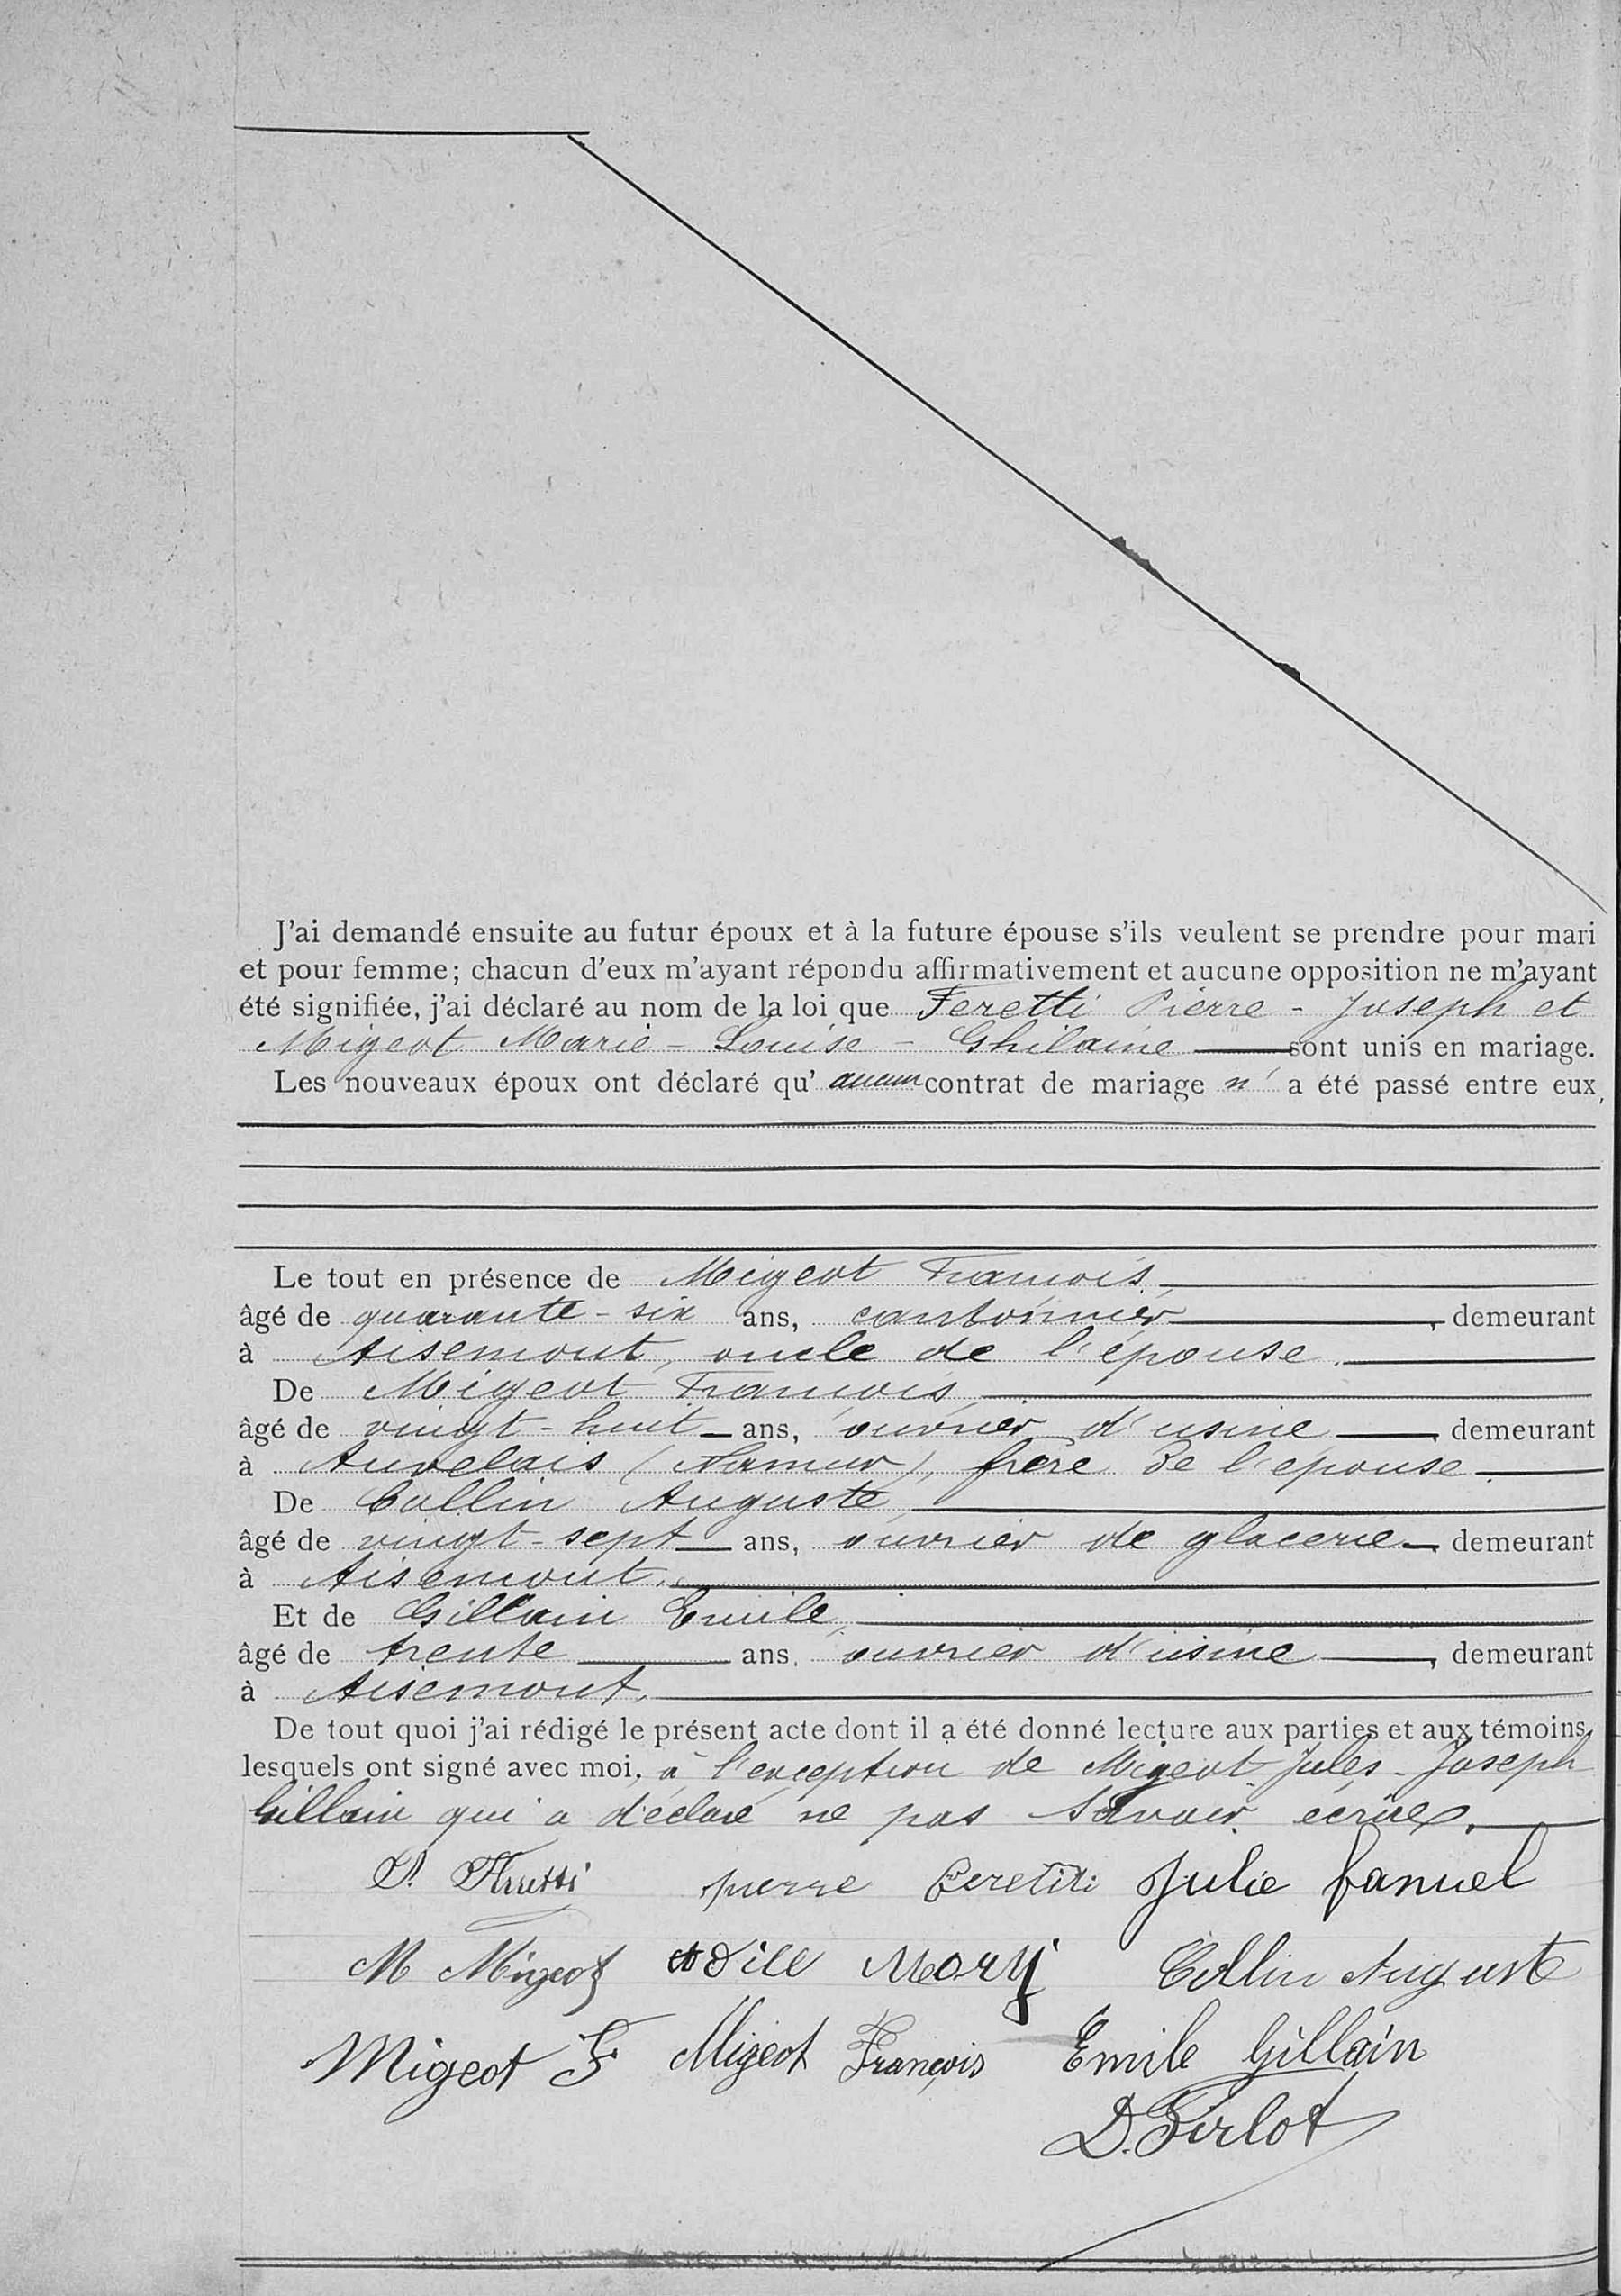 J'ai demandé ensuite au futur époux et à la future épouse s'ils veulent se prendre pour mari
et pour femme; chacun d'eux m'ayant répondu affirmativement et aucune opposition ne m'ayant
été signifiée, j'ai déclaré au nom de la loi que Feretti Pierre - Joseph et
Migeot Marie - Louise - Ghilaine sont unis en mariage.
Les nouveaux époux ont déclaré qu' aucun contrat de mariage n' a été passé entre eux,
Le tout en présence de Migeot François,
âgé de quarante - six ans, cantonnier, demeurant
à Aisemont, oncle de l'épouse.
De Migeot François,
âgé de vingt - huit ans, ouvrier d'usine, demeurant
à Auvelais (Namur), frère de l'épouse.
De Collin Auguste,
âgé de vingt - sept ans, ouvrier de glacerie, demeurant
à Aisemont.
Et de Gillain Emile,
âgé de trente ans, ouvrier d'usine, demeurant
à Aisemont.
De tout quoi j'ai rédigé le présent acte dont il a été donné lecture aux parties et aux témoins,
lesquels ont signé avec moi, à l'exception de Migeot Jules - Joseph
Gillain qui a déclaré ne pas savoir écrire.
P. Feretti pierre Feretti Julie fanuel
M Migeot Odile Mory Collin Auguste
Migeot F Migeot François Emile Gillain
D. Pirlot